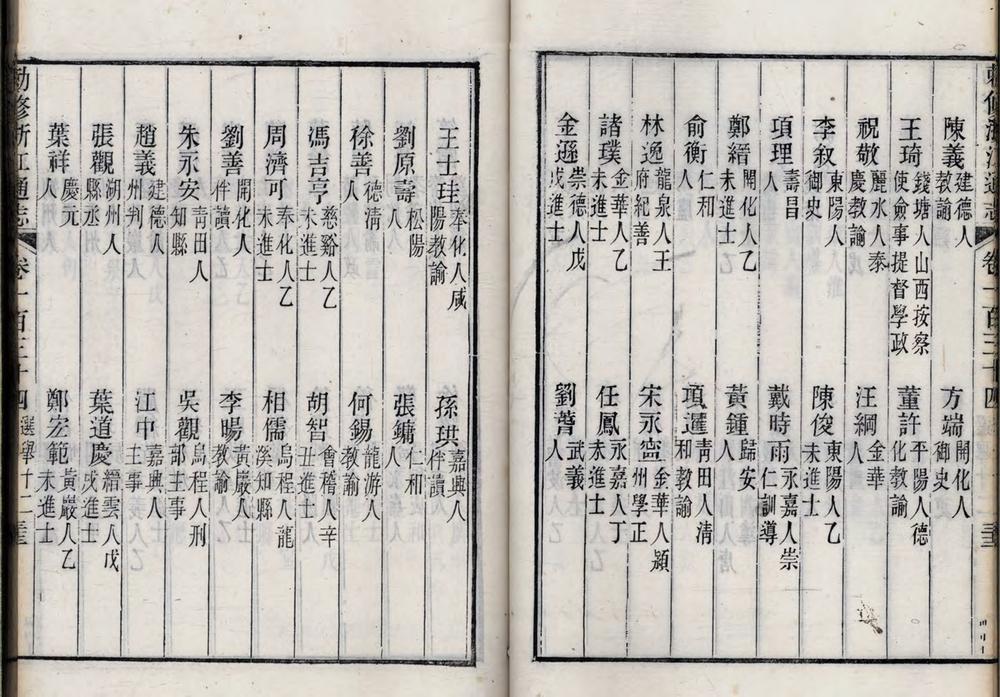 陳義建德人教諭　方端開化人御史
王琦錢塘人山西按察使僉事提督學政　董許平陽人德化教諭
祝敬麗水人泰慶教諭　汪綱金華人
李叙東陽人御史　陳俊東陽人乙未進士
項理壽昌人　戴時雨永嘉人崇仁訓導
鄭縉開化人乙未進士　黃鍾歸安人
俞衡仁和人　項暹青田人清和教諭
林逸龍泉人王府紀善　宋永盛金華人潁州學正
諸璞金華人乙未進士　任鳳永嘉人丁未進士
金遜崇德人戊戌進士　劉蒈武義人
勅修浙江通志　卷一百三十四　選舉十二
王士珪奉化人咸陽教諭　孫珙嘉興人伴讀
劉原壽松陽人　張鏞仁和人
徐善德清人　何錫龍游人教諭
馮吉亨慈谿人乙未進士　胡智會稽人辛丑進士
周濟可奉化人乙未進士　相儒烏程人龍溪知縣
劉善開化人伴讀　李暘黃巖人教諭
朱永安青田人知縣　吳觀烏程人刑部主事
趙義建德人州判　江中嘉興人主事
張觀湖州人縣丞　葉道慶縉雲人戊戌進士
葉祥慶元人　鄭宏範黃巖人乙未進士